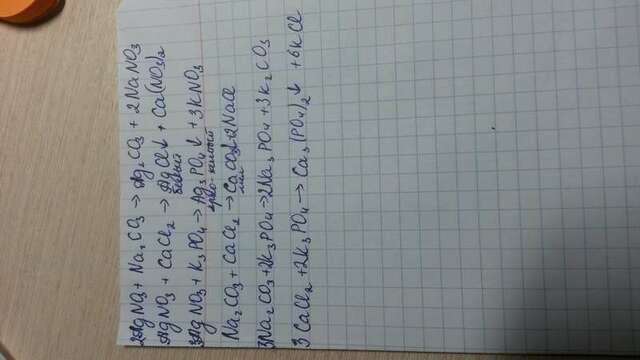 2AgNO3 + Na2CO3 → Ag2CO3 + 2NaNO3
2AgNO3 + CaCl2 → 2AgCl↓ + Ca(NO3)2
белый
3AgNO3 + K3PO4 → Ag3PO4↓ + 3KNO3
ярко-желтый
Na2CO3 + CaCl2 → CaCO3↓+2NaCl
3Na2CO3 + 2K3PO4 → 2Na3PO4 + 3K2CO3
3CaCl2 + 2K3PO4 → Ca3(PO4)2↓ + 6KCl